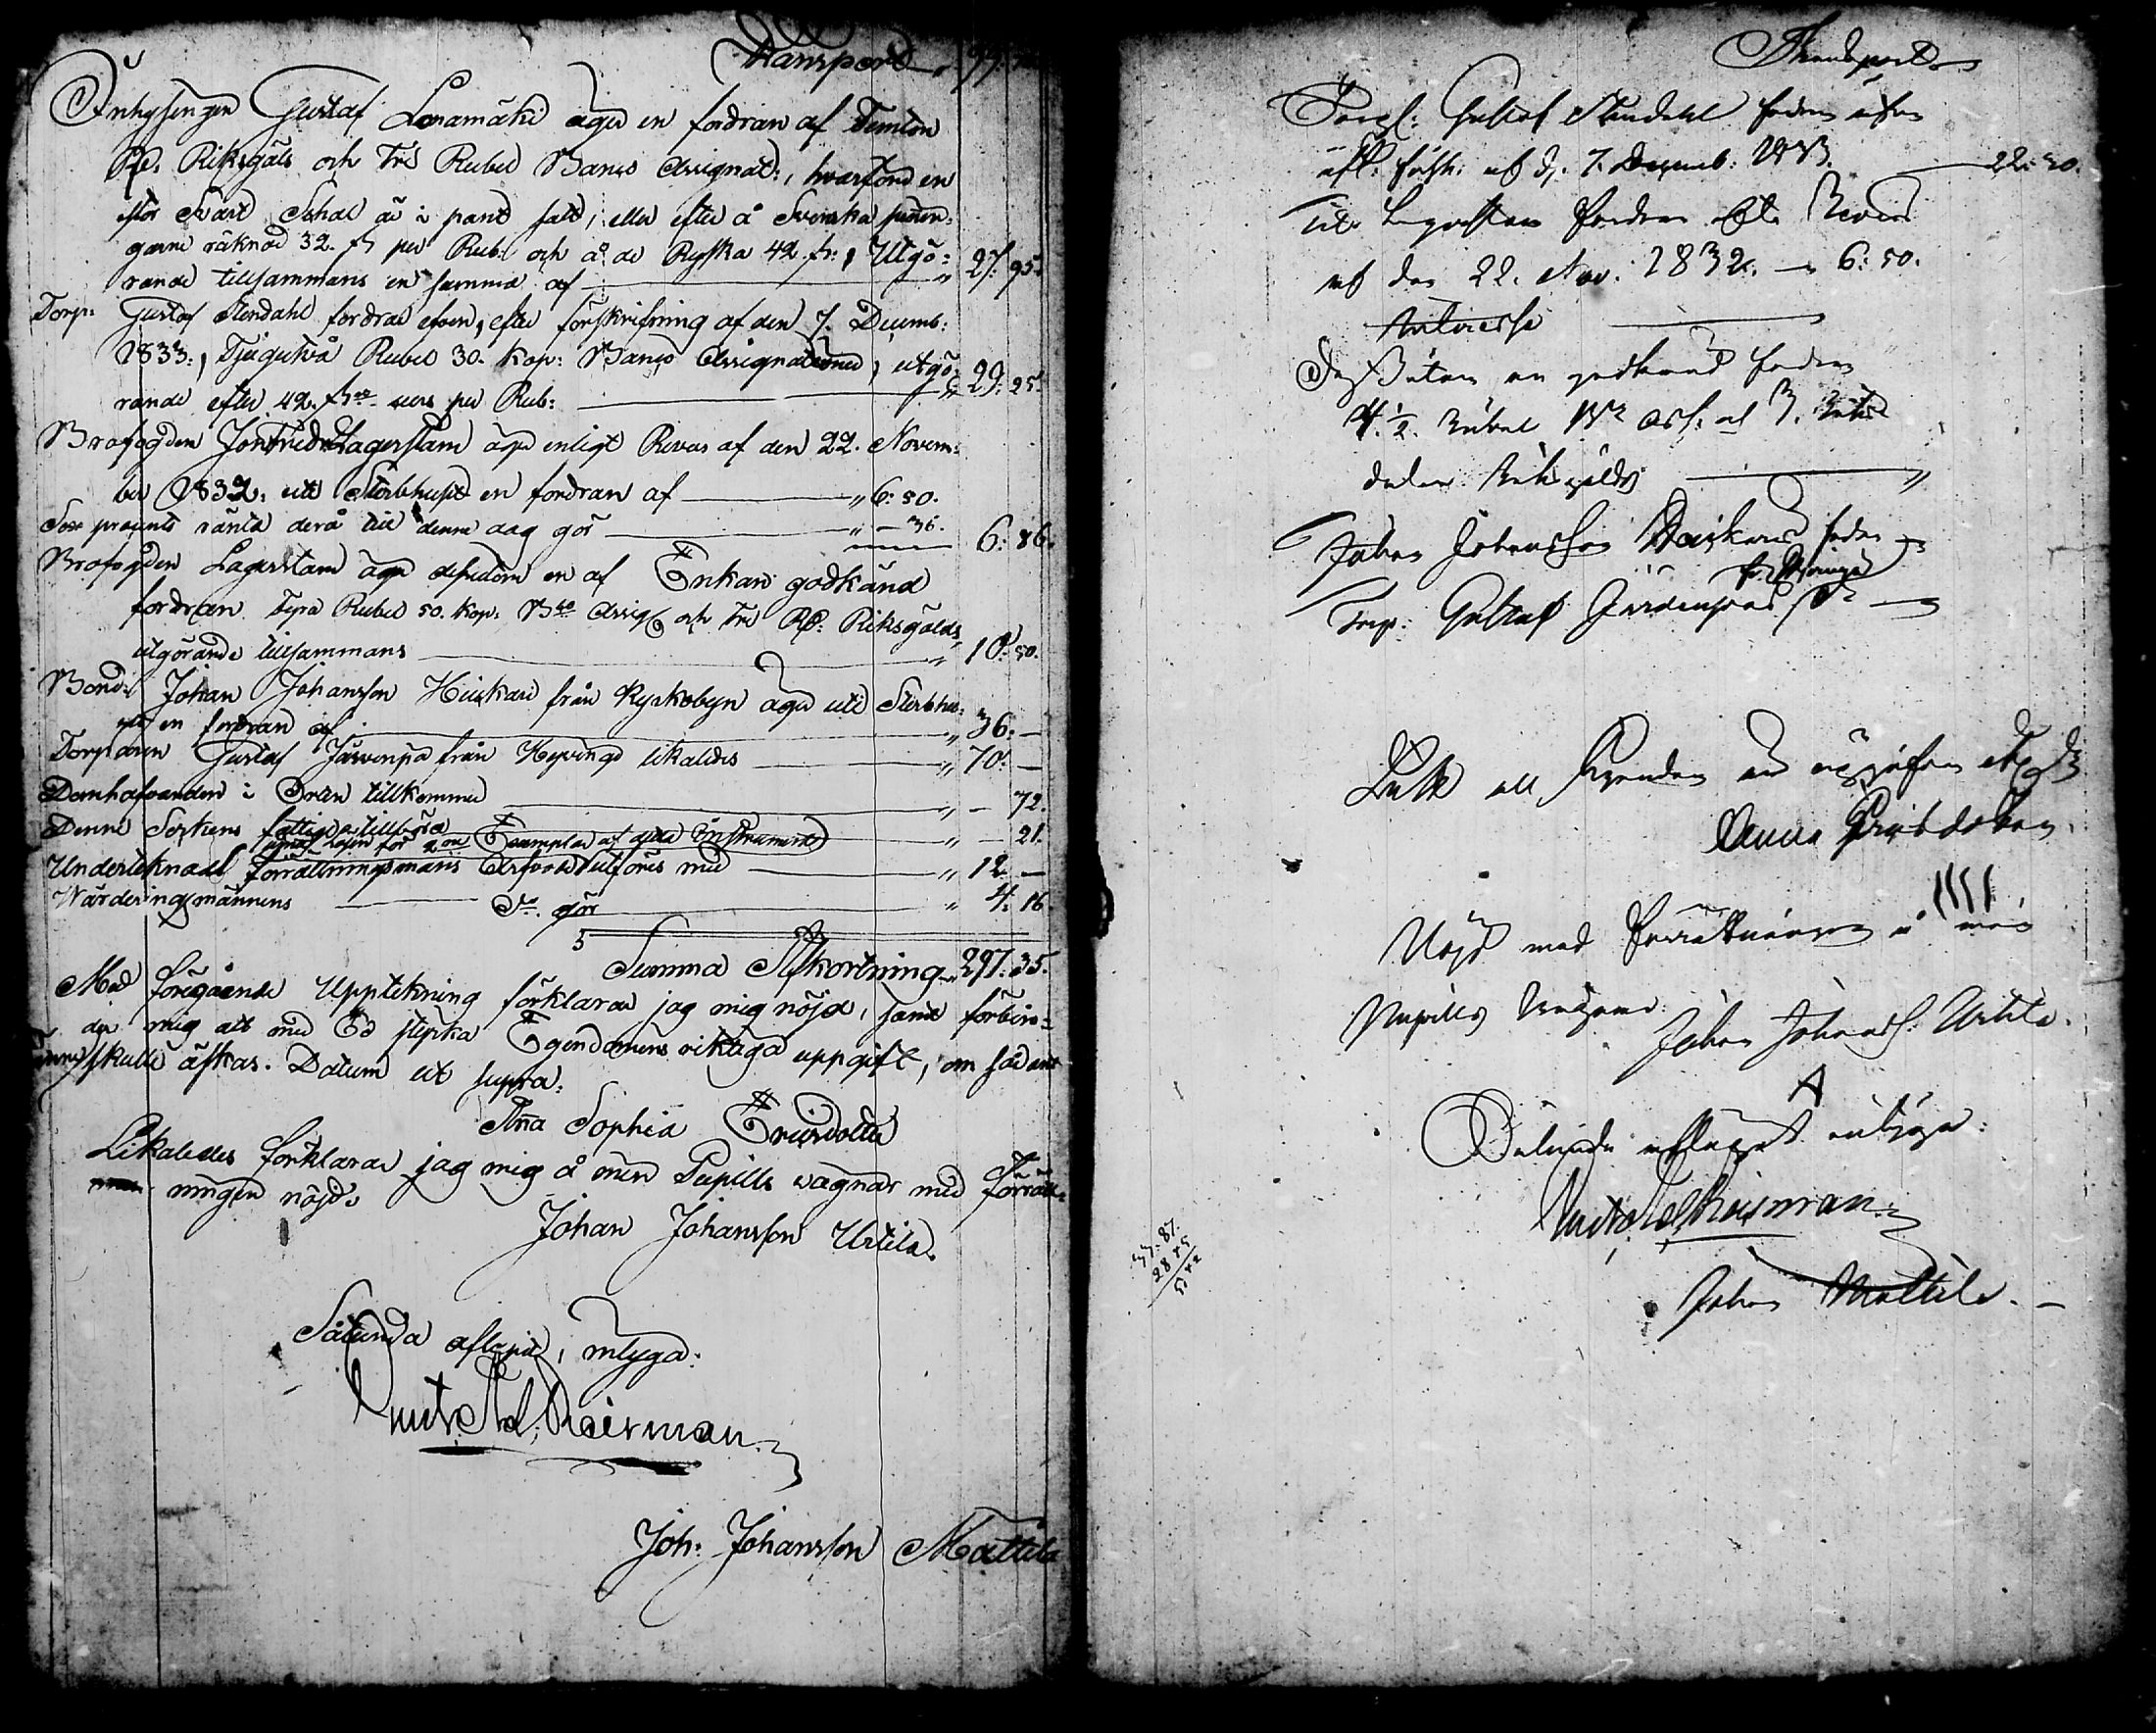 Transport 97:
Inhysingen Gustaf Lonamäki äger en fordran af Femton
Rd: Riksgäls och Tre Rubel Banco Assignat:, hvarföre en
stor Svart Schal är i pant satt, eller efter å Svenska pennin-
garne räknad 32. pr Rub: och å de Ryska 42. utgö-
rande tillsammans en summa af " 27: 95.
Torp: Gustaf Stendahl fordrar efven, efter förskrifning af den 7. Decemb:
1833:, Tjugutvå Rubel 30. kop: Banco Assignationer, utgö-
rande efter 42. per Rub: " 29: 25.
Brofogden Lagerstam äger enligt Revers af den 22. Novem-
ber 1832. uti Sterbhuset en fordran af " 6: 50.
Sex procents ränta derå till denne dag gör " — 36. 6: 86.
Brofogden Lagerstam äger dessutom en af Enkan godkänd
fordran Fyra Rubel 50. kop: Bco Assig och Tre Rd: Riksgälds,
utgörande tillsammans " 10: 50.
Bond: Johan Johansson Huiskari från Kyrkobyn äger uti Sterbhu-
set en fordran af " 36: —
Torparen Gustaf Järvenpä från Heyvinge likaledes " 70: —
Domhafvanden i Orten tillkommer " — 72.
Denne Sockens fattige tillföra " — 21.
lösen för Exemplar af detta Instrument
Undertecknad Förrättningsmans Arfvode utföres med " 12 —
Wärderingsmännens Do. gör " 4: 16.
Summa Afkortning " 297: 35.
Med föregående Upptekning förklarar jag mig nöjd, samt förbin-
der mig att med Ed styrka Egendomens riktiga uppgift, om sådant
skulle äskas. Datum ut supra.
Anna Sophia Ericsdotter
Likaledes förklarar jag mig å min Pupills vägnar med Förrätt-
ningen nöjd.
Johan Johansson Urtila.
Sålunda aflupit, intyga:
Knut Ad. Reisman
Joh: Johansson Mattila
Transport
Torp: Gustaf Stendahl fodrar äfven
efl. försk: af d. 7. Decemb: 1833. 22: 30.
fordran efter Revers
af den 22. Nov. 1832. — 6: 50.
Intresse
Dessutom en godkänd fodran
4. 1/2. Rubel Bco ass: och 3. Riks
daler Riksgälds "
Johan Johansson Huiskari fodrar
fr. Heyvinge
Torp: Gustaf Järvenpää
att Egendomen är uppgifven
Anna Ericsdotter
Nöjd med Förrättningen å min
Pupills vägnar.
Johan Johanss: Urtila.
Sålunda aflupit intyga:
Knut Ad Reisman
Johan Mattila. —
37: 87.
28 45